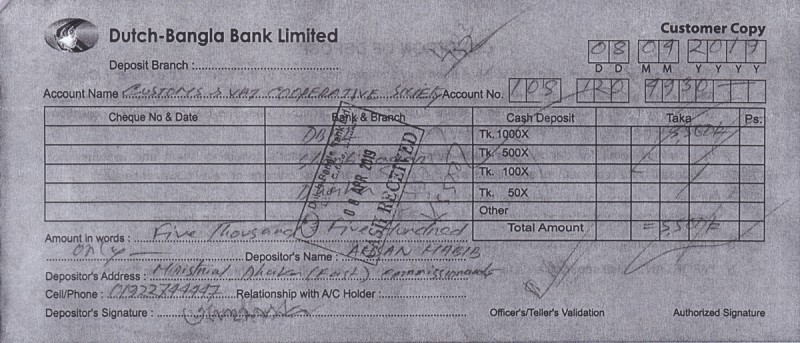 Dutch-Bangla Bank Limited
Customer Copy
08 04 2019
D D M M Y Y Y Y
Deposit Branch :
Account Name CUSTOMS & VAT COOPERATIVE Account No. 105 120
Cheque No & Date Bank & Branch Cash Deposit Taka Ps.
Tk. 1000X 5,500/-
Tk. 500X
Tk. 100X
Tk. 50X
Other
Total Amount = 5,500/-
Dutch-Bangla Bank
08 APR 2019
CASH RECEIVED
Amount in words : Five Thousand Five Hundred
only Depositor's Name : AHSAN HABIB
Depositor's Address : Dhaka (East)
Cell/Phone : 01922744447 Relationship with A/C Holder :
Depositor's Signature : Officer's/Teller's Validation Authorized Signature